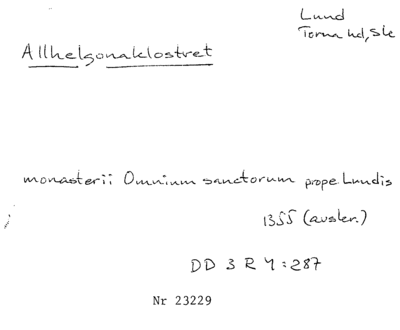 Lund
Torna hd, Sk
Allhelgonaklostret
monasterii Omnium sanctorum prope Lundis
1355 (avskr.)
DD 3 R 4:287
Nr 23229